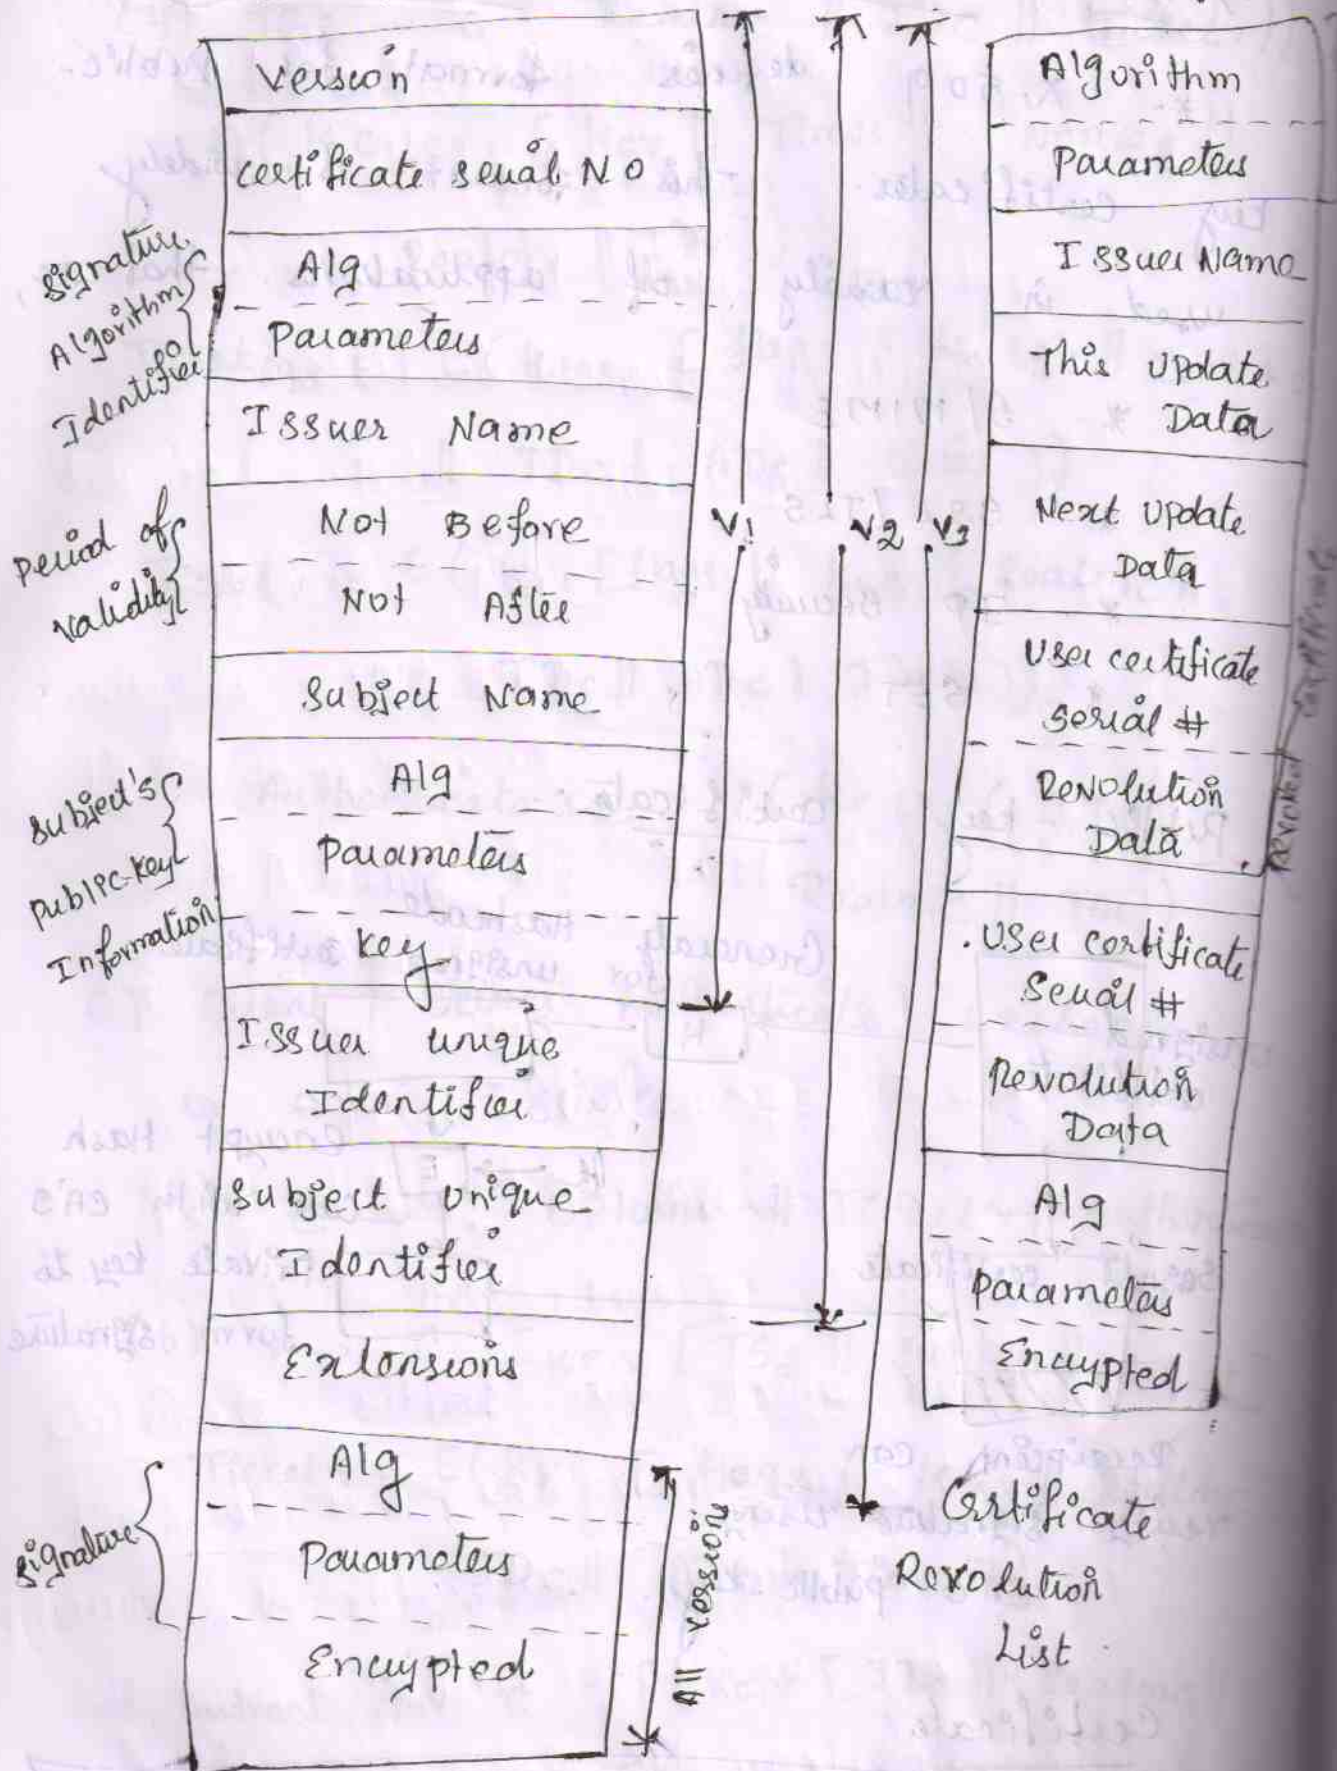 Version
certificate serial NO
Signature
Algorithm
Identifier
Alg
Parameters
Issuer Name
Period of
validity
Not Before
Not After
Subject Name
Subject's
Public-key
Information
Alg
Parameters
Key
Issuer unique
Identifier
Subject unique
Identifier
Extensions
Signature
Alg
Parameters
Encrypted
V1
V2
V3
All version
Algorithm
Parameters
Issuer Name
This Update
Data
Next Update
Data
User certificate
serial #
Revolution
Data
Revoked
User certificate
Serial #
Revolution
Data
Alg
Parameters
Encrypted
Certificate
Revolution
List